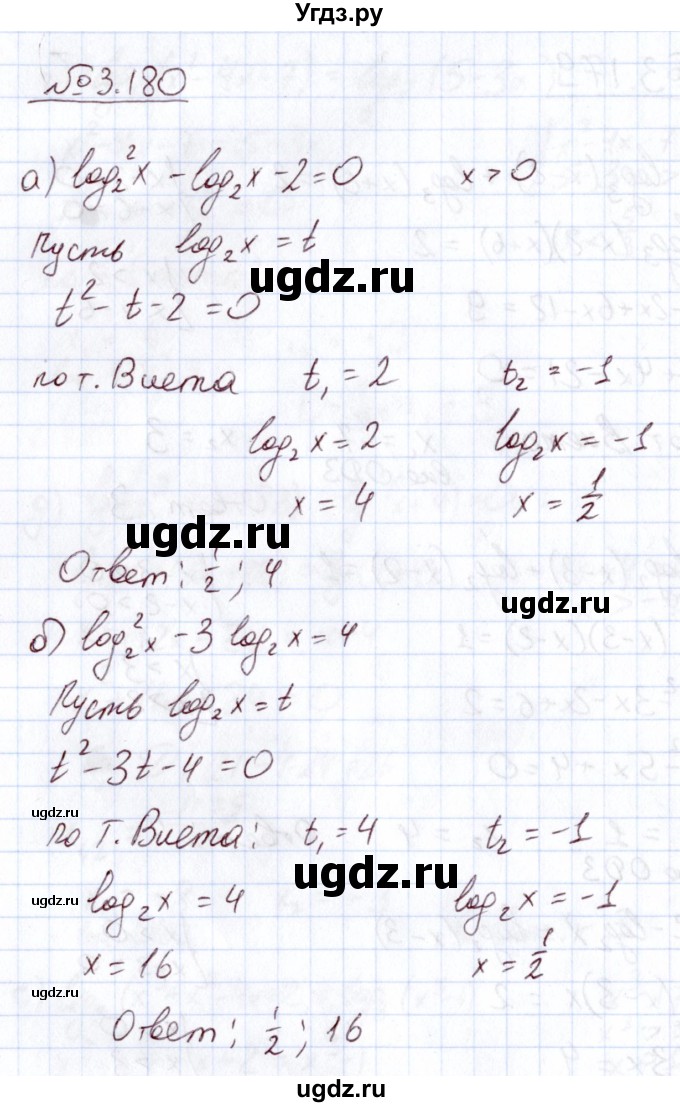 Угдз.ру
№3.180
а) log₂²x - log₂x - 2 = 0 x > 0
Пусть log₂x = t
ugdz.ru
t² - t - 2 = 0
по т. Виета t₁ = 2 t₂ = -1
log₂x = 2 log₂x = -1
x = 4 x = 1/2
ugdz.ru
Ответ: 1/2; 4
ugdz.ru
б) log₂²x - 3 log₂x = 4
Пусть log₂x = t
t² - 3t - 4 = 0
ugdz.ru
по т. Виета: t₁ = 4 t₂ = -1
ugdz.ru
ugdz.ru
log₂x = 4 log₂x = -1
x = 16 x = 1/2
ugdz.ru
Ответ: 1/2; 16
ugdz.ru